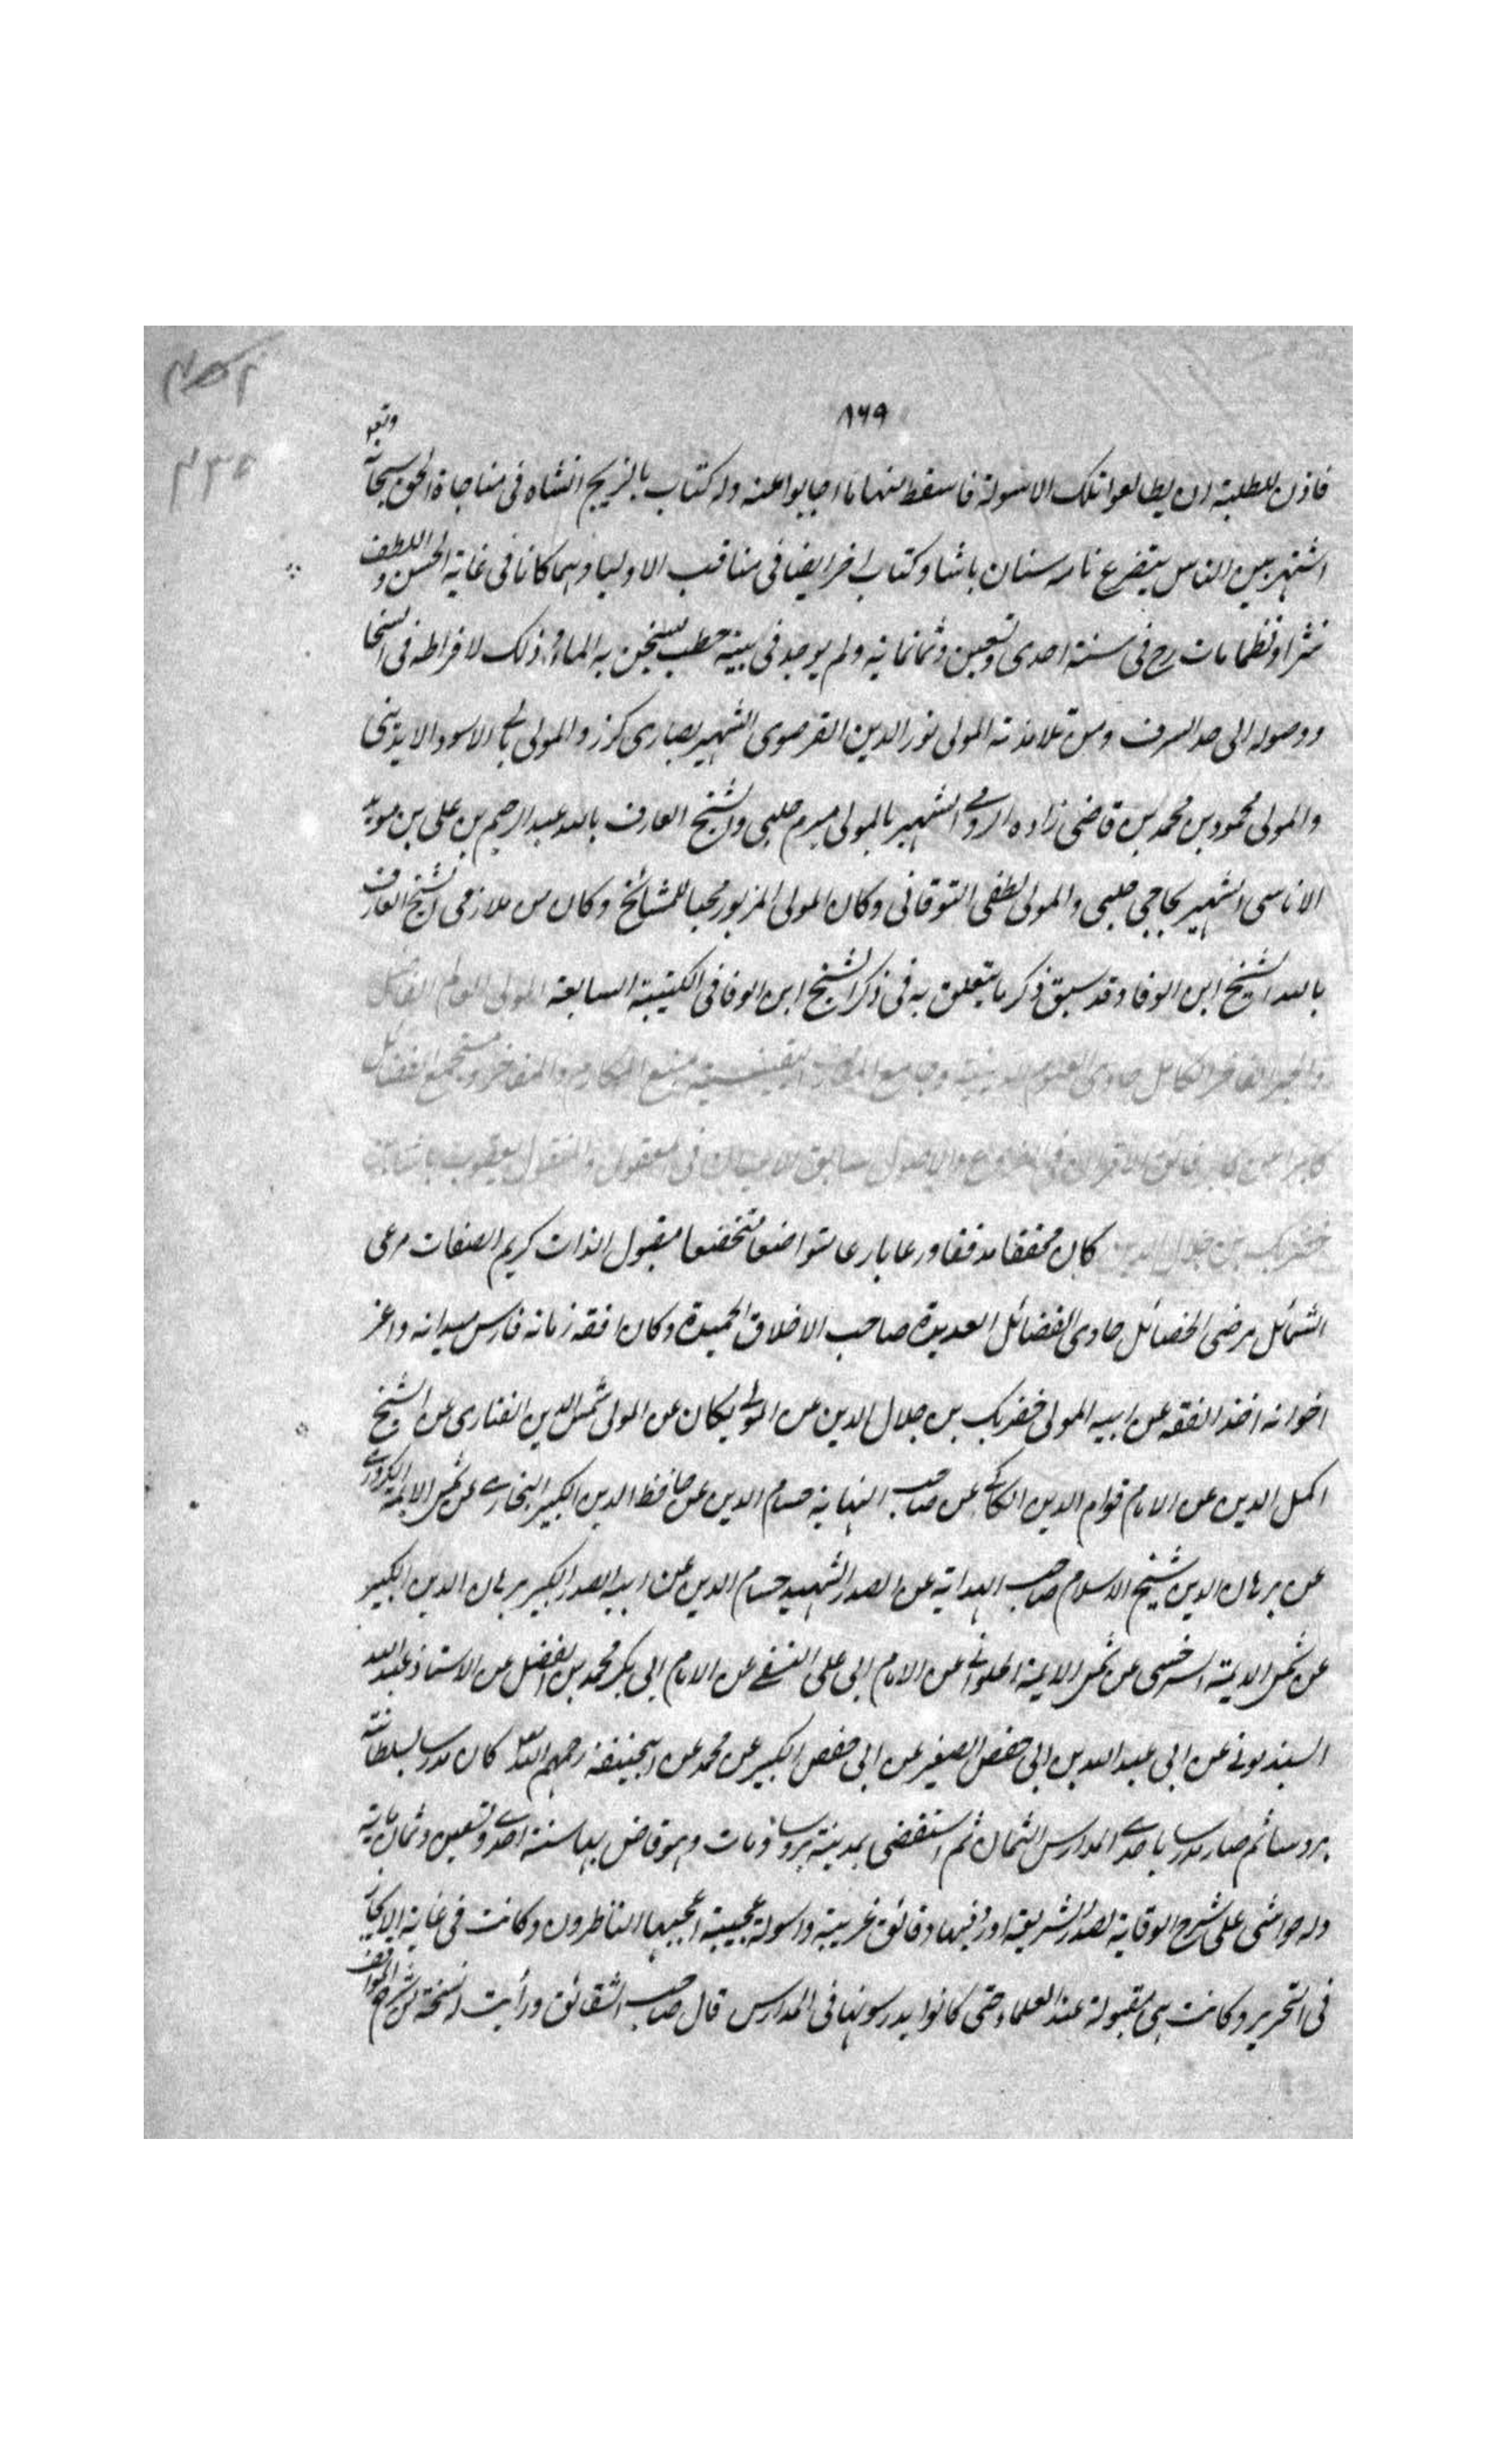 ٨٦٩
فاذن للطلبة ان يطالعوا تلك الاسولة فاسقط منها ما اجابوا عنه وله كتاب بالتركيح انشاه فى مناجاة الحق سبحانه وتعه
اشتهر بين الناس بتضرع نامه سنان باشا وكتاب اخر ايضا فى مناقب الاوليا وهما كانا فى غاية الحسن واللطف
نثرا ونظما مات رح فى سنة احدى وتسعين وثمانماية ولم يوجد فى بيته حطب يسخن به الماء وذلك لافراطه فى السخا
ووصوله الى حد السرف ومن تلامذته المولى نور الدين القرصوى الشهير بصارى كرز والمولى بالى الاسود الايدينى
والمولى محمود بن محمد بن قاضى زاده الرومى الشهير بالمولى ميرم چلبى والشيخ العارف بالله عبد الرحيم بن على بن مويد
الاماسى الشهير بحاجى چلبى والمولى لطفى التوقاتى وكان المولى المزبور محبا للمشائخ وكان من ملازمى الشيخ العارف
بالله الشيخ ابن الوفا وقد سبق ذكر ما يتعلق به فى ذكر الشيخ ابن الوفا فى الكتيبة السابعة المولى العالم الفاضل
والحبر الفاخر الكامل حاوى العلوم الدينية وجامع المعارف اليقينية منبع المكارم والمفاخر ومستجمع الفضائل
كابرا عن كابر فائق الاقران فى الفروع والاصول سابق الاعيان فى المعقول والمنقول يعقوب باشا بن
خضر بك بن جلال الدين كان محققا مدققا ورعا بارعا متواضعا متخشعا مقبول الذات كريم الصفات مرعى
الشمائل مرضى الخصائل حاوى الفضائل العديدة صاحب الاخلاق الحميدة وكان افقه زمانه فارس ميدانه واعز
اخوانه اخذ الفقه عن ابيه المولى خضر بك بن جلال الدين عن المولى يكان عن المولى شمس الدين الفنارى عن الشيخ
اكمل الدين عن الامام قوام الدين الكاكى عن صاحب النهاية حسام الدين عن حافظ الدين الكبير البخارى عن شمس الايمة الكردرى
عن برهان الدين شيخ الاسلام صاحب الهداية عن الصدر الشهيد حسام الدين عن ابيه الصدر الكبير برهان الدين الكبير
عن شمس الايمة السرخسى عن شمس الايمة الحلوانى عن الامام ابى على النسفى عن الامام ابى بكر محمد بن الفضل عن الاستاذ عبد الله
السبذمونى عن ابى عبد الله بن ابى حفص الصغير عن ابى حفص الكبير عن محمد عن ابيحنيفة رحمهم الله تعه كان مدرسا بسلطانية
بروسا ثم صار مدرسا باحدى المدارس الثمان ثم استقضى بمدينة بروسا ومات وهو قاض بها سنة احدى وتسعين وثمان ماية
وله حواشى على شرح الوقاية لصدر الشريعة اورد فيها دقائق غريبة واسولة عجيبة اعجب بها الناظرون وكانت فى غاية الايجاز
فى التحرير وكانت هى مقبولة عند العلماء حتى كانوا يدرسونها فى المدارس قال صاحب الشقائق ورأيت نسخة من شرح المواقف